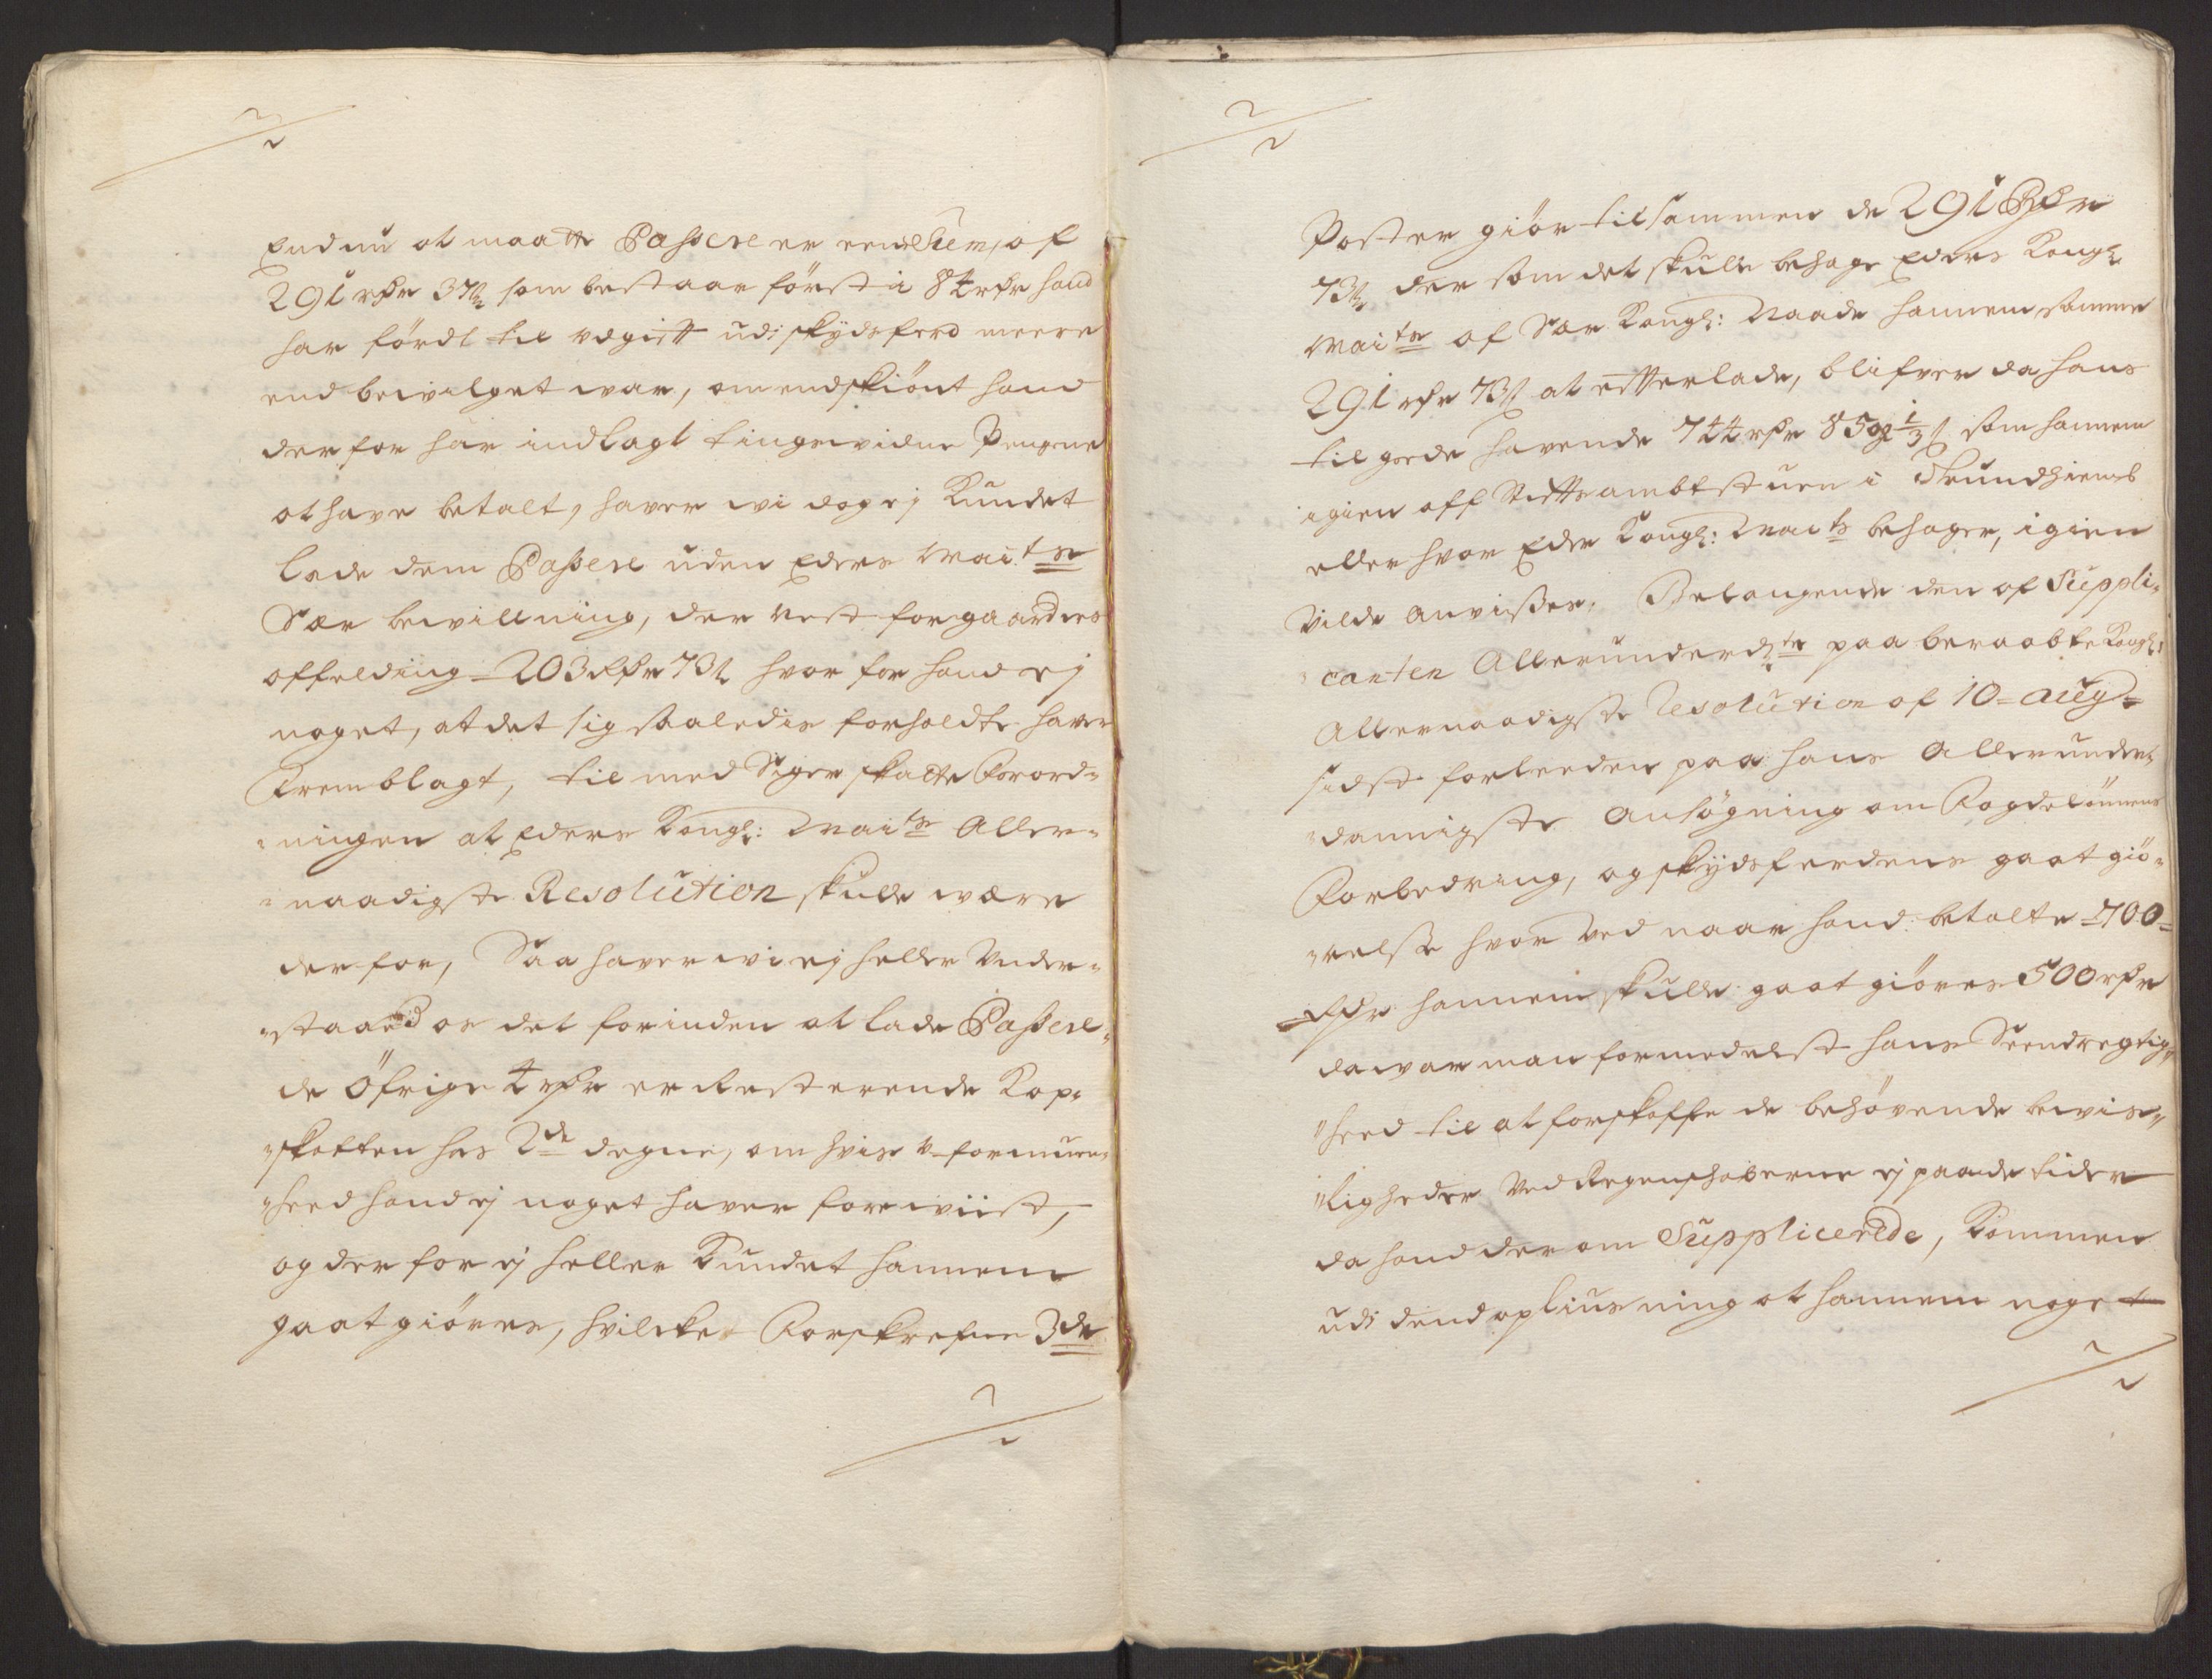 Endnu at maatte Passere er een Sum, af
291 rdr 73 ß som bestaar först i 84 rdr hand
har fördt til udgift udi skydsferd meere
end bevilget war, om endskiönt hand
der for har indlagt tingsvidne Pengene
at have betalt, haver wi dog ej Kundet
lade dem Passere uden Eders Maits
Sær bewillning, der nest for gaardes
affelding 203 Rdr 73 ß hvor for hand ej
noget, at det sig saaledis forholdte haver
Fremblagt, til med Siger skatte Forord-
ningen at Eders Kongl: Maits Aller-
naadigste Resolution skulle være
der for, Saa haver wi ej heller Under-
staaed os det forinden at lade Passere,
de Öfrige 4 rdr er Resterende Kop-
skatten hos 2de degne, om hvis u-formuen-
heed hand ej noget haver fore wiist,
og der for ej heller Kundet hannem
gaat giöres, hvilcke Forskrefne 3de
Poster giör tilsammen de 291 Rdr
73 ß der som det skulle behage Eders Kongl
Maits af Sær Kongl: Naade hannem samme
291 rdr 73 ß at efterlade, blifver da hans
til gode havende 744 rdr 85 og 1/3 ß som hannem
igien aff Stiftsambtstuen i Trundhiemb
eller hvor Eder Kongl: Maits behager, igien
Vilde anvisses, Belangende den af Suppli-
canten Allerunderdste paa beraabte Kongl:
Allernaadigste Resolution af 10 Aug
sidst forleeden paa hans Allerunder-
dannigste Ansögning om Fogdelönnens
Forbedring, og skydsferdens gaat giö-
relse hvor Ved naar hand betalte 700
Rdr hannem skulle gaat giöres 500 rdr
da war man formedelst hans Seendregtig-
heed til at forskaffe de behövende bewis-
ligheder Ved Regenskaberne ej paa de tider
da hand der om Supplicerede, Kommen
udi dend opliusning at hannem noget